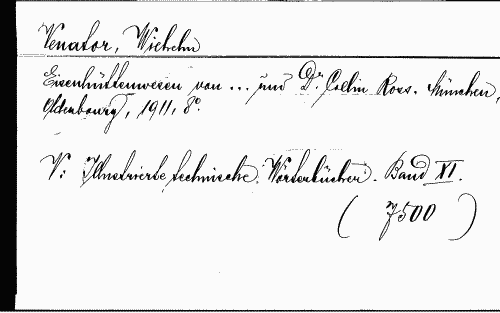 Venator, Wilhelm
Eisenhüttenwesen von ... und Dr. Collin Ross. München,
Oldenbourg, 1911, 8°.
V: Illustrierte technische Wörterbücher. Band XI.
( 7500 )